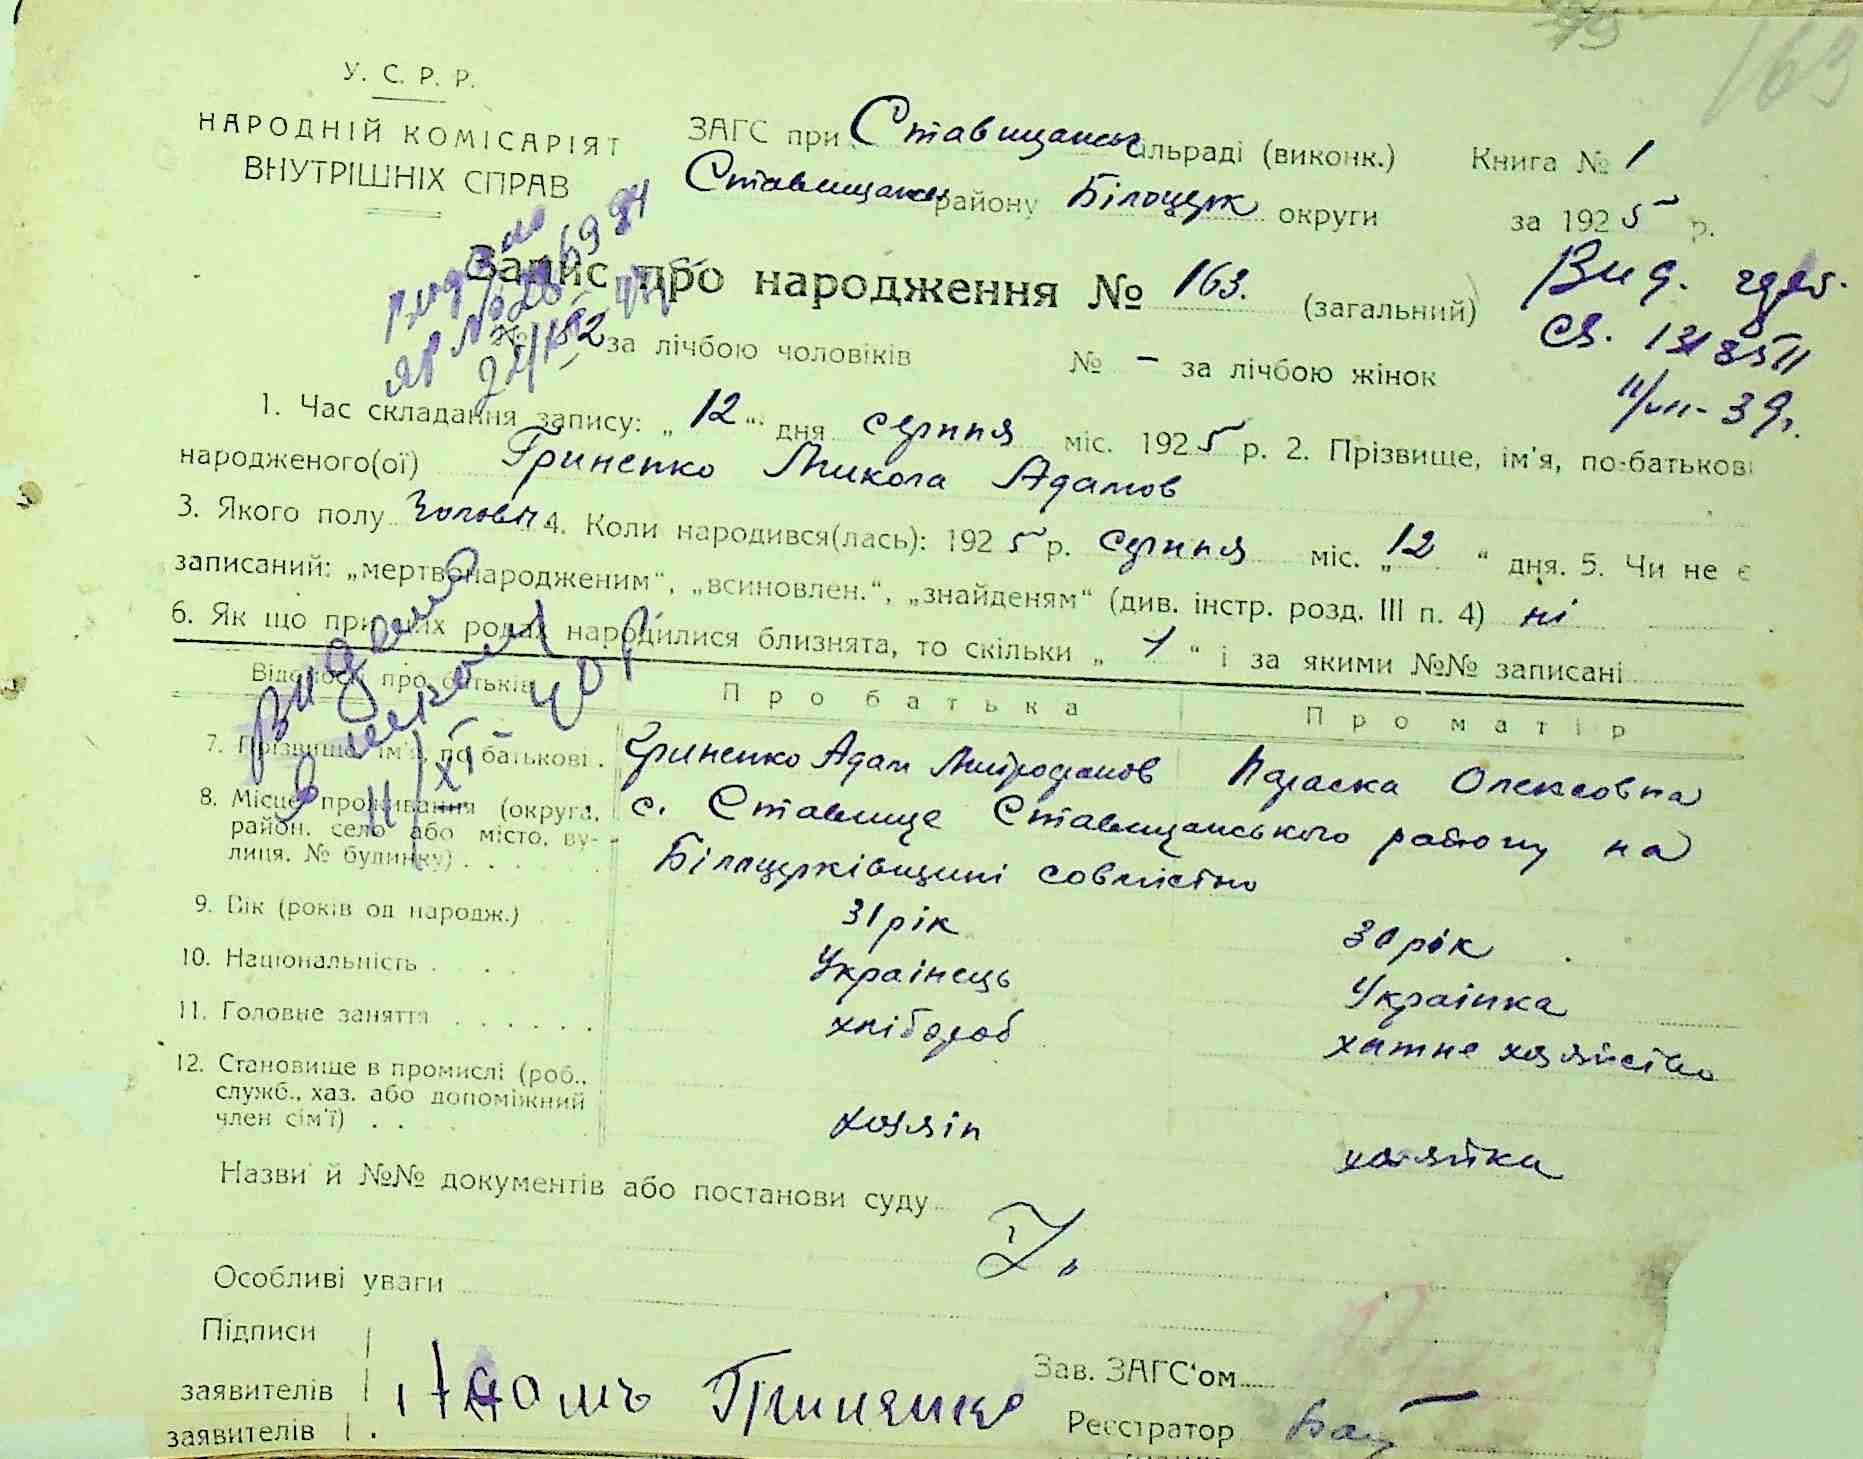 163
У. С. Р. Р.
НАРОДНІЙ КОМІСАРІЯТ
ВНУТРІШНІХ СПРАВ
ЗАГС при Ставищанськ сільраді (виконк.) Книга № 1
Ставищанськ району Білоцерк округи за 1925 р.
Запис про народження № 163. (загальний)
Вид.
св.
11/VII-39р.
Видано
за лічбою чоловіків № – за лічбою жінок
1. Час складання запису: „12“ дня серпня міс. 1925 р. 2. Прізвище, ім'я, по-батькові
народженого(ої) Гриненко Микола Адамов
3. Якого полу чоловіч 4. Коли народився(лась): 1925 р. серпня міс. „12“ дня. 5. Чи не є
записаний: „мертвонародженим“, „всиновлен.“, „знайденям“ (див. інстр. розд. III п. 4) ні
6. Як що при цих родах народилися близнята, то скільки „1“ і за якими №№ записані
Відомости про батьків Про батька Про матір
Видано
11/XI 40 р.
7. Прізвище, ім'я, по батькові. Гриненко Адам Митрофанов Параска Олексовна
8. Місце проживання (округа, район, село або місто, вулиця, № будинку) с. Ставище Ставищанського району на
Білоцерківщині совмістно
9. Вік (років од народж.) 31 рік 30 рік
10. Національність Українець Українка
11. Головне заняття хлібороб хатне хазяйство
12. Становище в промислі (роб.,
служб., хаз. або допоміжний
член сім'ї) хозяін хозяйка
Назви й №№ документів або постанови суду
Особливі уваги
Підписи
заявителів Адамъ Гриненко
Зав. ЗАГС'ом
заявителів
Реєстратор